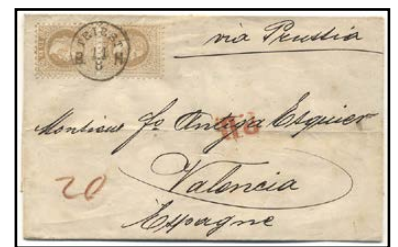 TRIEST
via Prussia
Monsieur Jo Antiga Esquier
20
Valencia
Espagne